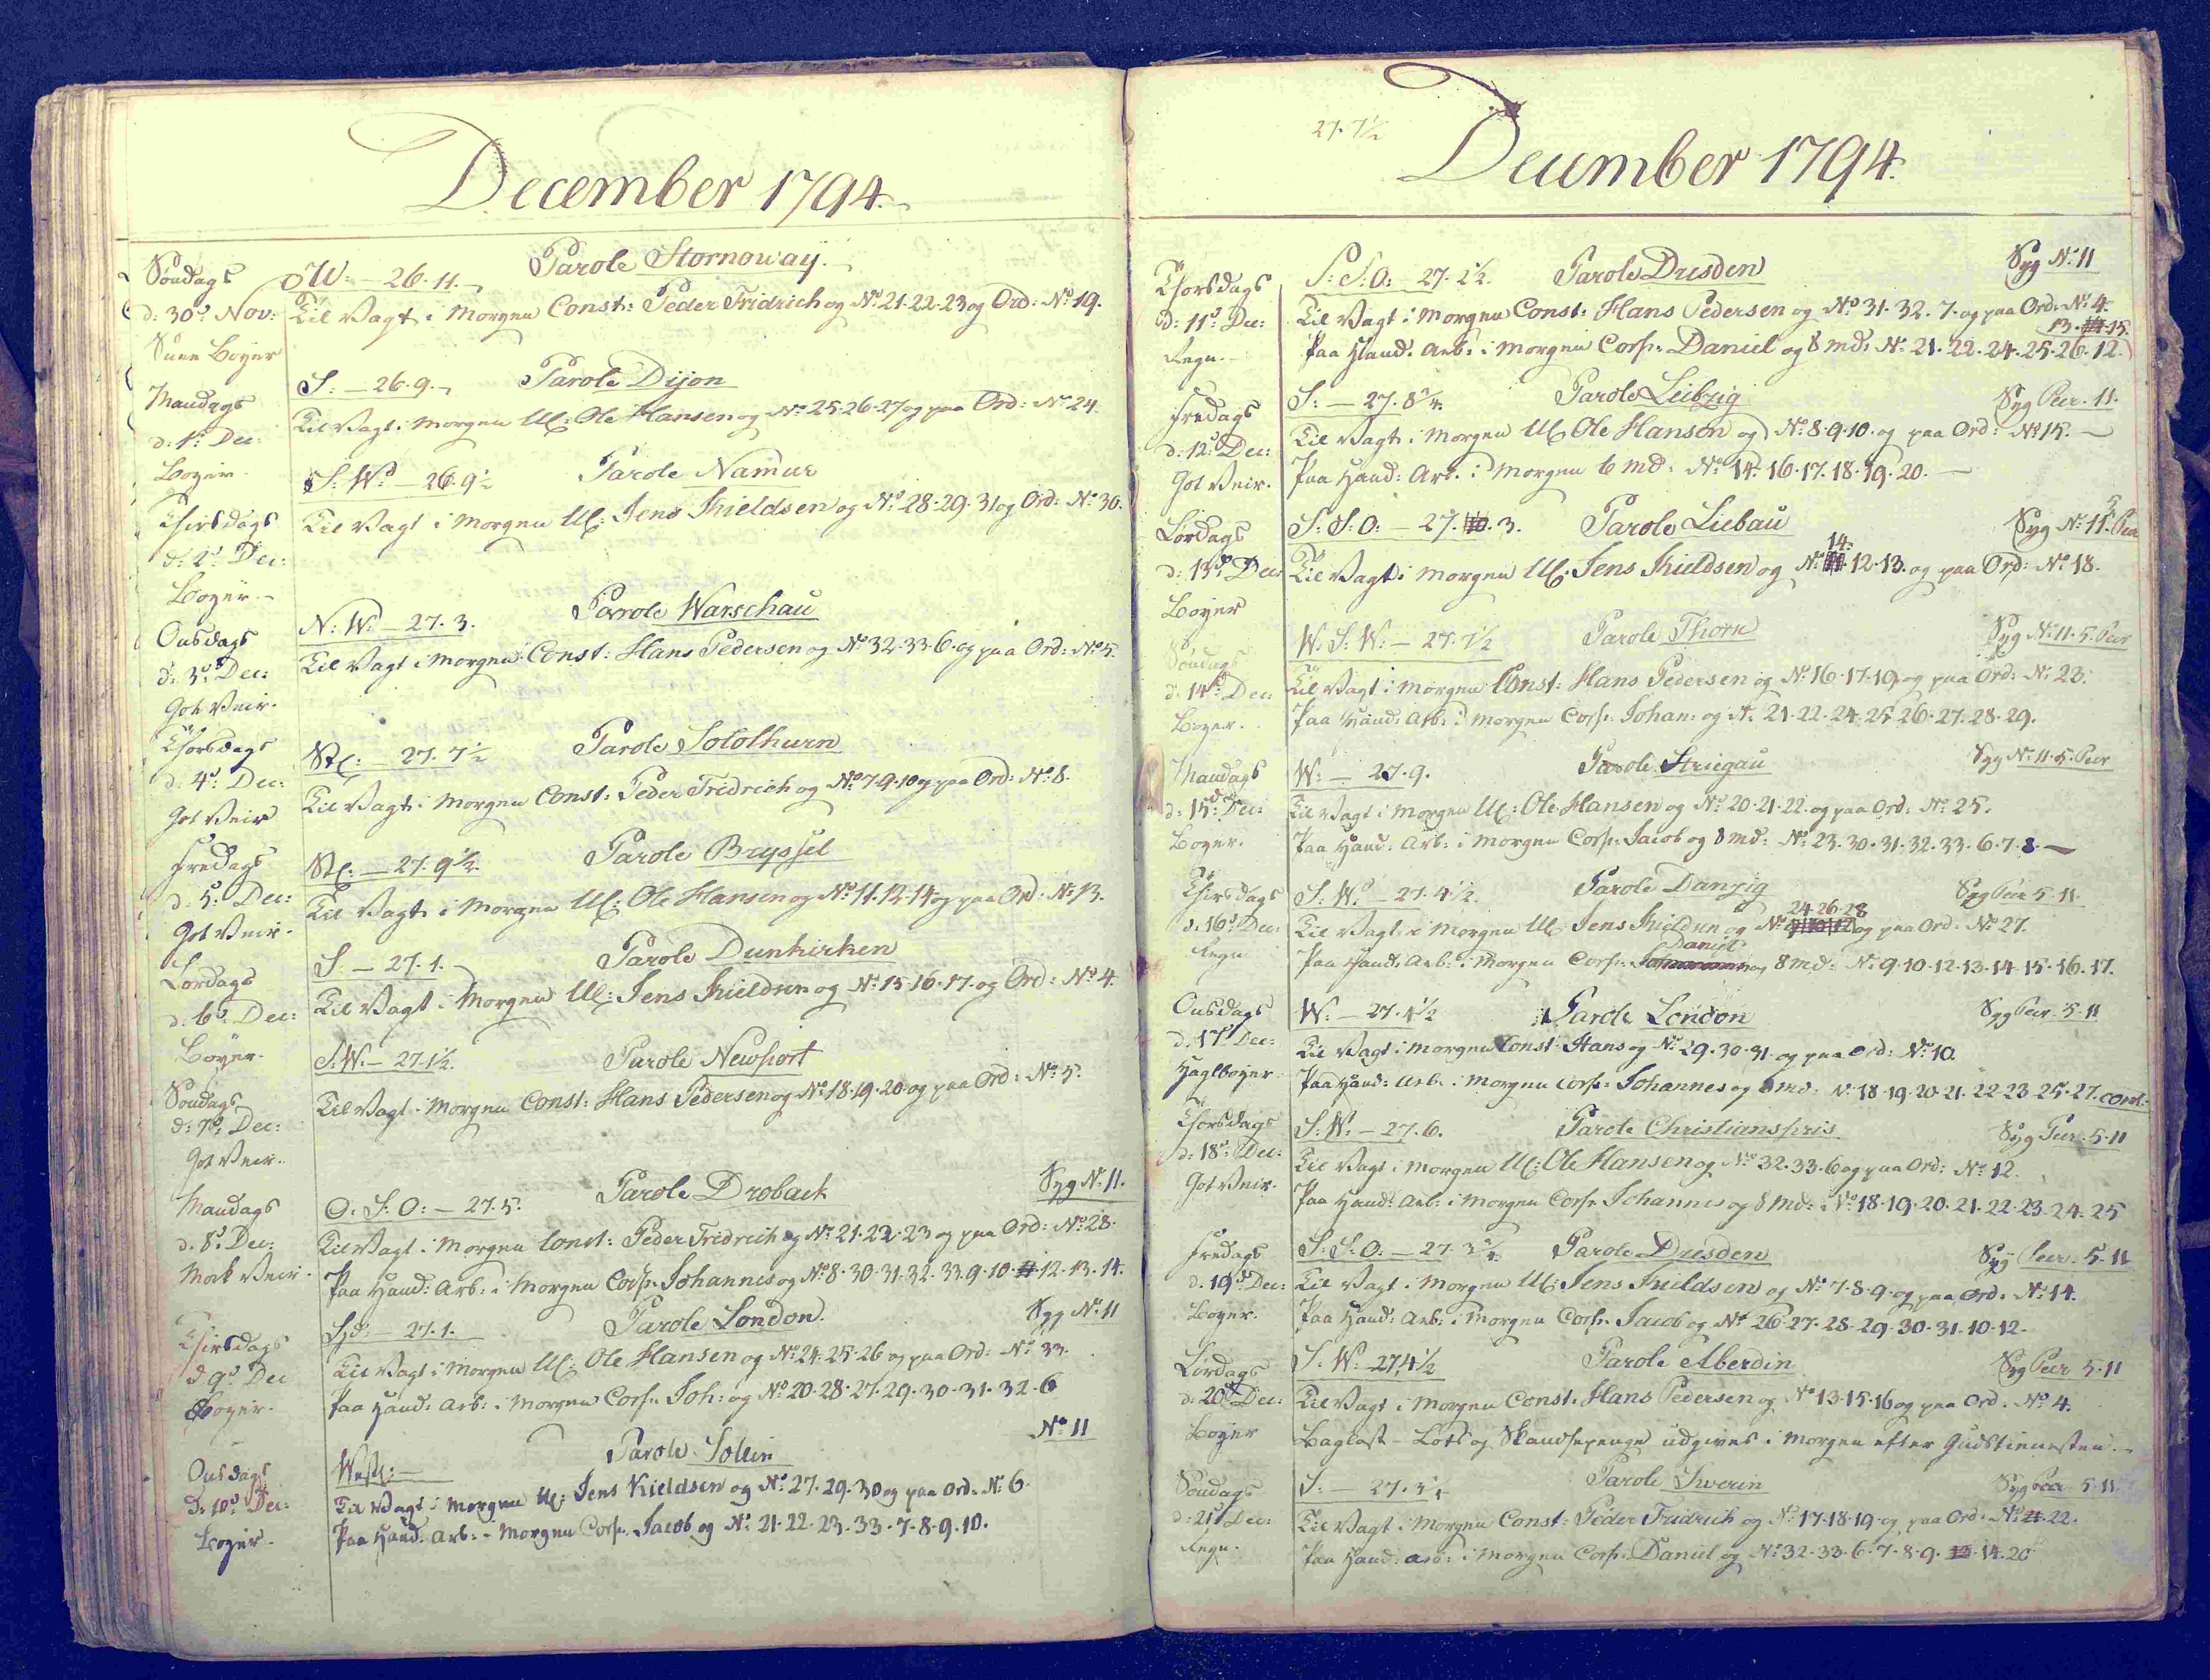 December 1794.
Søndags
d: 30d Nov:
Snee Boyer
W: — 26. 11. Parole Stornoway.
Til Vagt i Morgen Const: Peder Fridrich og No 21. 22. 23 og Ord: No 19.
Mandags
d: 1d Dec:
Boyer
S: — 26. 9. Parole Dijon
Til Vagt i Morgen UC: Ole Hansen og No 25. 26. 27 og paa Ord: No 24.
Thirsdags
d: 2d Dec:
Boyer
S: W: — 26. 9½ Parole Namur
Til Vagt i Morgen UC: Jens Kieldsen og No 28. 29. 31 og Ord: No 30.
Onsdags
d: 3d Dec:
Got Veir.
N: W: — 27. 3. Parole Warschau
Til Vagt i Morgen Const: Hans Pedersen og No 32. 33. 6. og paa Ord: No 5.
Thorsdags
d: 4d Dec:
Got Veir
Stl: — 27. 7½ Parole Solothurn
Til Vagt i Morgen Const: Peder Fridrich og No 7. 9. 10 og paa Ord: No 8.
Fredags
d: 5d Dec:
Got Veir.
Stl: — 27. 9½. Parole Bryssel
Til Vagt i Morgen UC: Ole Hansen og No 11. 12. 14 og paa Ord: No 13.
Lørdags
d: 6d Dec:
Boyer.
S: — 27. 1. Parole Dunkirken
Til Vagt i Morgen UC: Jens Kieldsen og No 15. 16. 17. og Ord: No 4.
Søndags
d: 7d Dec:
Got Veir.
S: W: — 27. 1½. Parole Newport
Til Vagt i Morgen Const: Hans Pedersen og No 18. 19. 20. og paa Ord: No 5.
Mandags
d. 8d Dec:
Mørk Veir.
O. S: O: — 27. 5. Parole Droback Syg No 11.
Til Vagt i Morgen Const: Peder Fridrich og No 21. 22. 23 og paa Ord: No 28.
Paa Hand: Arb: i Morgen Corp: Johannes og No 8. 30. 31. 32. 33. 9. 10. 12. 13. 14.
Thirsdags
d 9d Dec
Boyer.
Syd: — 27. 1. Parole London. Syg No 11
Til Vagt i Morgen UC: Ole Hansen og No 24. 25. 26 og paa Ord: No 33.
Paa Hand: Arb: i Morgen Corp: Joh: og No 20. 28. 27. 29. 30. 31. 32. 6
Onsdags
d: 10d Dec:
Boyer.
Westl: — Parole No 11
Til Vagt i Morgen UC: Jens Kieldsen og No 27. 29. 30 og paa Ord: No 6.
Paa Hand: Arb: i Morgen Corp: Jacob og No 21. 22. 23. 33. 7. 8. 9. 10.
27. 7½
December 1794.
Thorsdags
d: 11d Dec:
Regn.
S: S: O: — 27. 2½. Parole Dresden Syg No 11
Til Vagt i Morgen Const: Hans Pedersen og No 31. 32. 7. og paa Ord: No 4.
13. 14. 15.
Paa Hand: Arb: i Morgen Corp: Daniel og 8 md: No 21. 22. 24. 25. 26. 12.
Fredags
d: 12d Dec:
Got Veir.
S: — 27. 8¾. Parole Leibzig Syg Peer. 11.
Til Vagt i Morgen UC Ole Hanson og No 8. 9. 10. og paa Ord: No 15.
Paa Hand: Arb. i Morgen 6 md: No 14. 16. 17. 18. 19. 20.
Lørdags
d: 13d Dec:
Boyer
S: S: O: — 27. 3. Parole Liebau Syg No 11. 5. Peer
14.
Til Vagt i Morgen UC: Jens Kieldsen og No 12. 13. og paa Ord: No 18.
Søndags
d: 14d Dec:
Boyer.
W. S: W: — 27. 7½ Parole Thorn Syg No 11. 5. Peer
Til Vagt i Morgen Const: Hans Pedersen og No 16. 17. 19. og paa Ord: No 23.
Paa Hand: Arb: i Morgen Corp: Johan: og No 21. 22. 24. 25. 26. 27. 28. 29.
Mandags
d: 15d Dec:
Boyer.
W: — 27. 9. Parole Striegau Syg No 11. 5. Peer
Til Vagt i Morgen UC: Ole Hansen og No 20. 21. 22. og paa Ord: No 25.
Paa Hand: Arb: i Morgen Corp: Jacob og 8 md: No 23. 30. 31. 32. 33. 6. 7. 8.
Thirsdags
d: 16d Dec:
Regn
S: W: — 27. 4½. Parole Danzig Syg Peer 5. 11.
24. 26. 28
Til Vagt i Morgen UC Jens Kieldsen og No og paa Ord: No 27.
Daniel
Paa Hand: Arb: i Morgen Corp: og 8 md: No 9. 10. 12. 13. 14. 15. 16. 17.
Onsdags
d. 17d Dec:
Haglboyer
W: — 27. 4½ Parole London Syg Peer. 5. 11
Til Vagt i Morgen Const: Hans og No 29. 30. 31. og paa Ord: No 10.
Paa Hand: Arb. i Morgen Corp: Johannes og 8 md: No 18. 19. 20. 21. 22. 23. 25. 27.
Thorsdags
d: 18d Dec:
Got Veir.
S: W: — 27. 6. Parole Christianspris Syg Peer. 5. 11
Til Vagt i Morgen UC: Ole Hansen og No 32. 33. 6 og paa Ord: No 12.
Paa Hand: Arb: i Morgen Corp: Johannes og 8 md: No 18. 19. 20. 21. 22. 23. 24. 25
Fredags
d. 19d Dec:
Boyer.
S: S: O: — 27. 3¾. Parole Dresden Syg Peer. 5. 11
Til Vagt i Morgen UC: Jens Kieldsen og No 7. 8. 9. og paa Ord: No 14.
Paa Hand: Arb: i Morgen Corp: Jacob og No 26. 27. 28. 29. 30. 31. 10. 12.
Lørdags
d: 20d Dec:
Boyer
S: W: 27. 4½ Parole Aberdin Syg Peer 5. 11
Til Vagt i Morgen Const: Hans Pedersen og No 13. 15. 16 og paa Ord: No 4.
Baglast- Lods og Skandsepenge udgives i Morgen efter Gudstienesten.
Søndags
d: 21d Dec:
Regn.
S: — 27. Parole Swerin Syg Peer 5. 11
Til Vagt i Morgen Const: Peder Fridrich og No 17. 18. 19. og paa Ord: No 22.
Paa Hand: Arb: i Morgen Corp: Daniel og No 32. 33. 6. 7. 8. 9. 14. 20